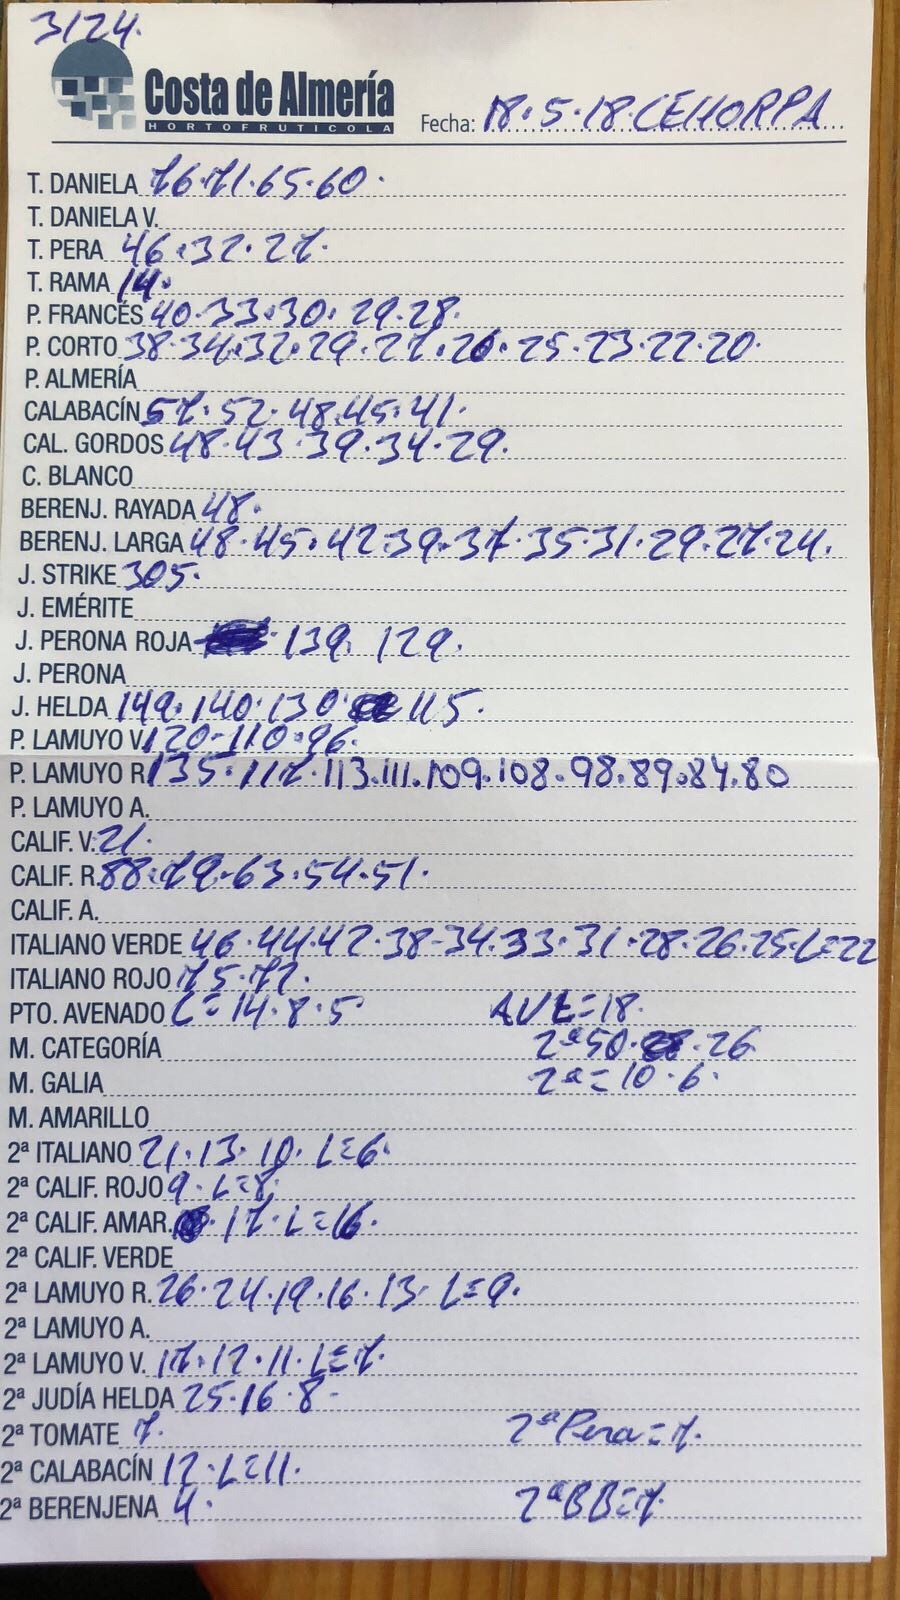 3124.
Costa de Almería
HORTOFRUTICOLA
Fecha: 18.5.18.CEHORPA
T. DANIELA 76.71.65.60.
T. DANIELA V.
T. PERA 46.32.27.
T. RAMA 14.
P. FRANCÉS 40.33.30.29.28.
P. CORTO 38.34.32.29.27.26.25.23.22.20.
P. ALMERÍA
CALABACÍN 57.52.48.45.41.
CAL. GORDOS 48.43.39.34.29.
C. BLANCO
BERENJ. RAYADA 48.
BERENJ. LARGA 48.45.42.39.37.35.31.29.27.24.
J. STRIKE 305.
J. EMÉRITE
J. PERONA ROJA 139. 129.
J. PERONA
J. HELDA 149.140.130. 115.
P. LAMUYO V. 120-110.96.
P. LAMUYO R 135.117.113.111.109.108.98.89.84.80
P. LAMUYO A.
CALIF. V. 21.
CALIF. R. 88.79.63.54.51.
CALIF. A.
ITALIANO VERDE 46.44.42.38-34.33.31.28.26.25.L=22
ITALIANO ROJO 75.72.
PTO. AVENADO L=14.8.5 AVE=18.
M. CATEGORÍA 2ª50. .26
M. GALIA 2ª=10.6.
M. AMARILLO
2ª ITALIANO 21.13.10.L=6.
2ª CALIF. ROJO 9.L=8.
2ª CALIF. AMAR. 17.L=16.
2ª CALIF. VERDE
2ª LAMUYO R. 26.24.19.16.13.L=9.
2ª LAMUYO A.
2ª LAMUYO V. 17.12.11.L=7.
2ª JUDÍA HELDA 25.16.8-
2ª TOMATE 7. 2ªPera=7.
2ª CALABACÍN 12.L=11.
2ª BERENJENA 4. 2ªBB=7.